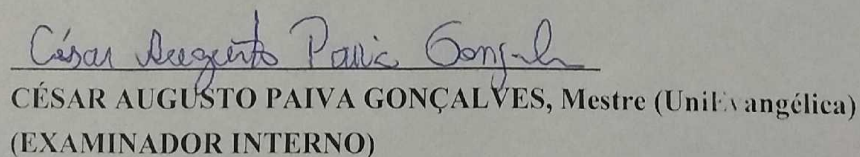 César Augusto Paiva Gonçal
CÉSAR AUGUSTO PAIVA GONÇALVES, Mestre (UniEvangélica)
(EXAMINADOR INTERNO)